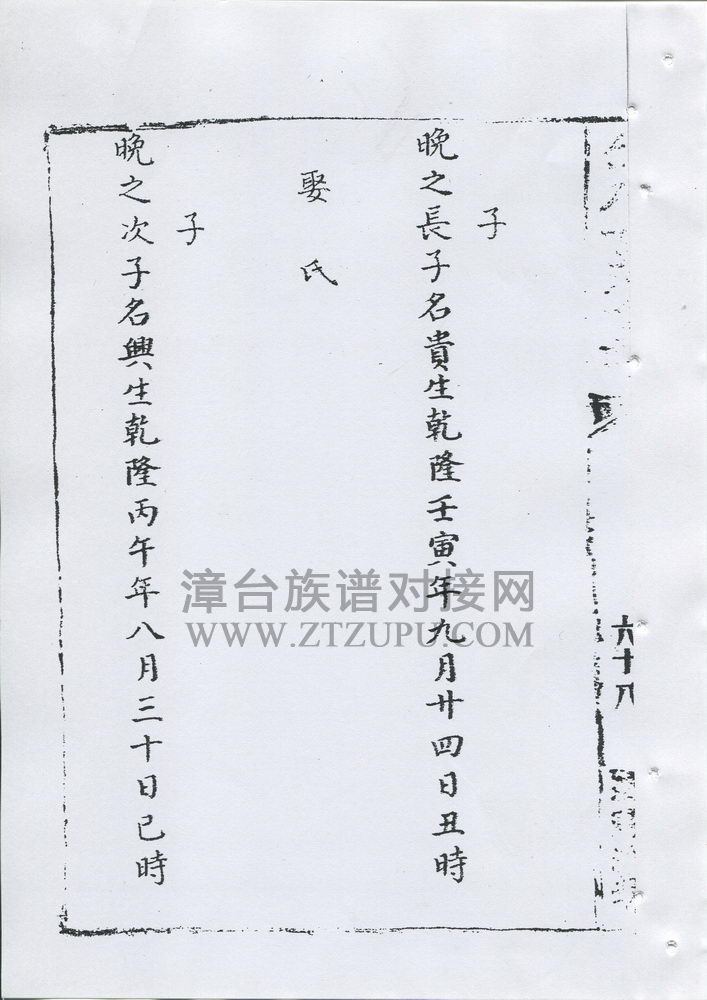 六十八
子
晚之長子名貴生乾隆壬寅年九月廿四日丑時
娶 氏
子
晚之次子名興生乾隆丙午年八月三十日巳時
漳台族谱对接网
WWW.ZTZUPU.COM